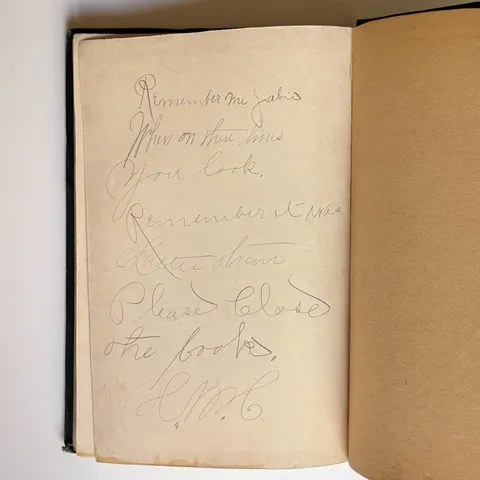 Remember me
When on these lines
You look.
Remember it was
Please Close
the book.
H. M. C.